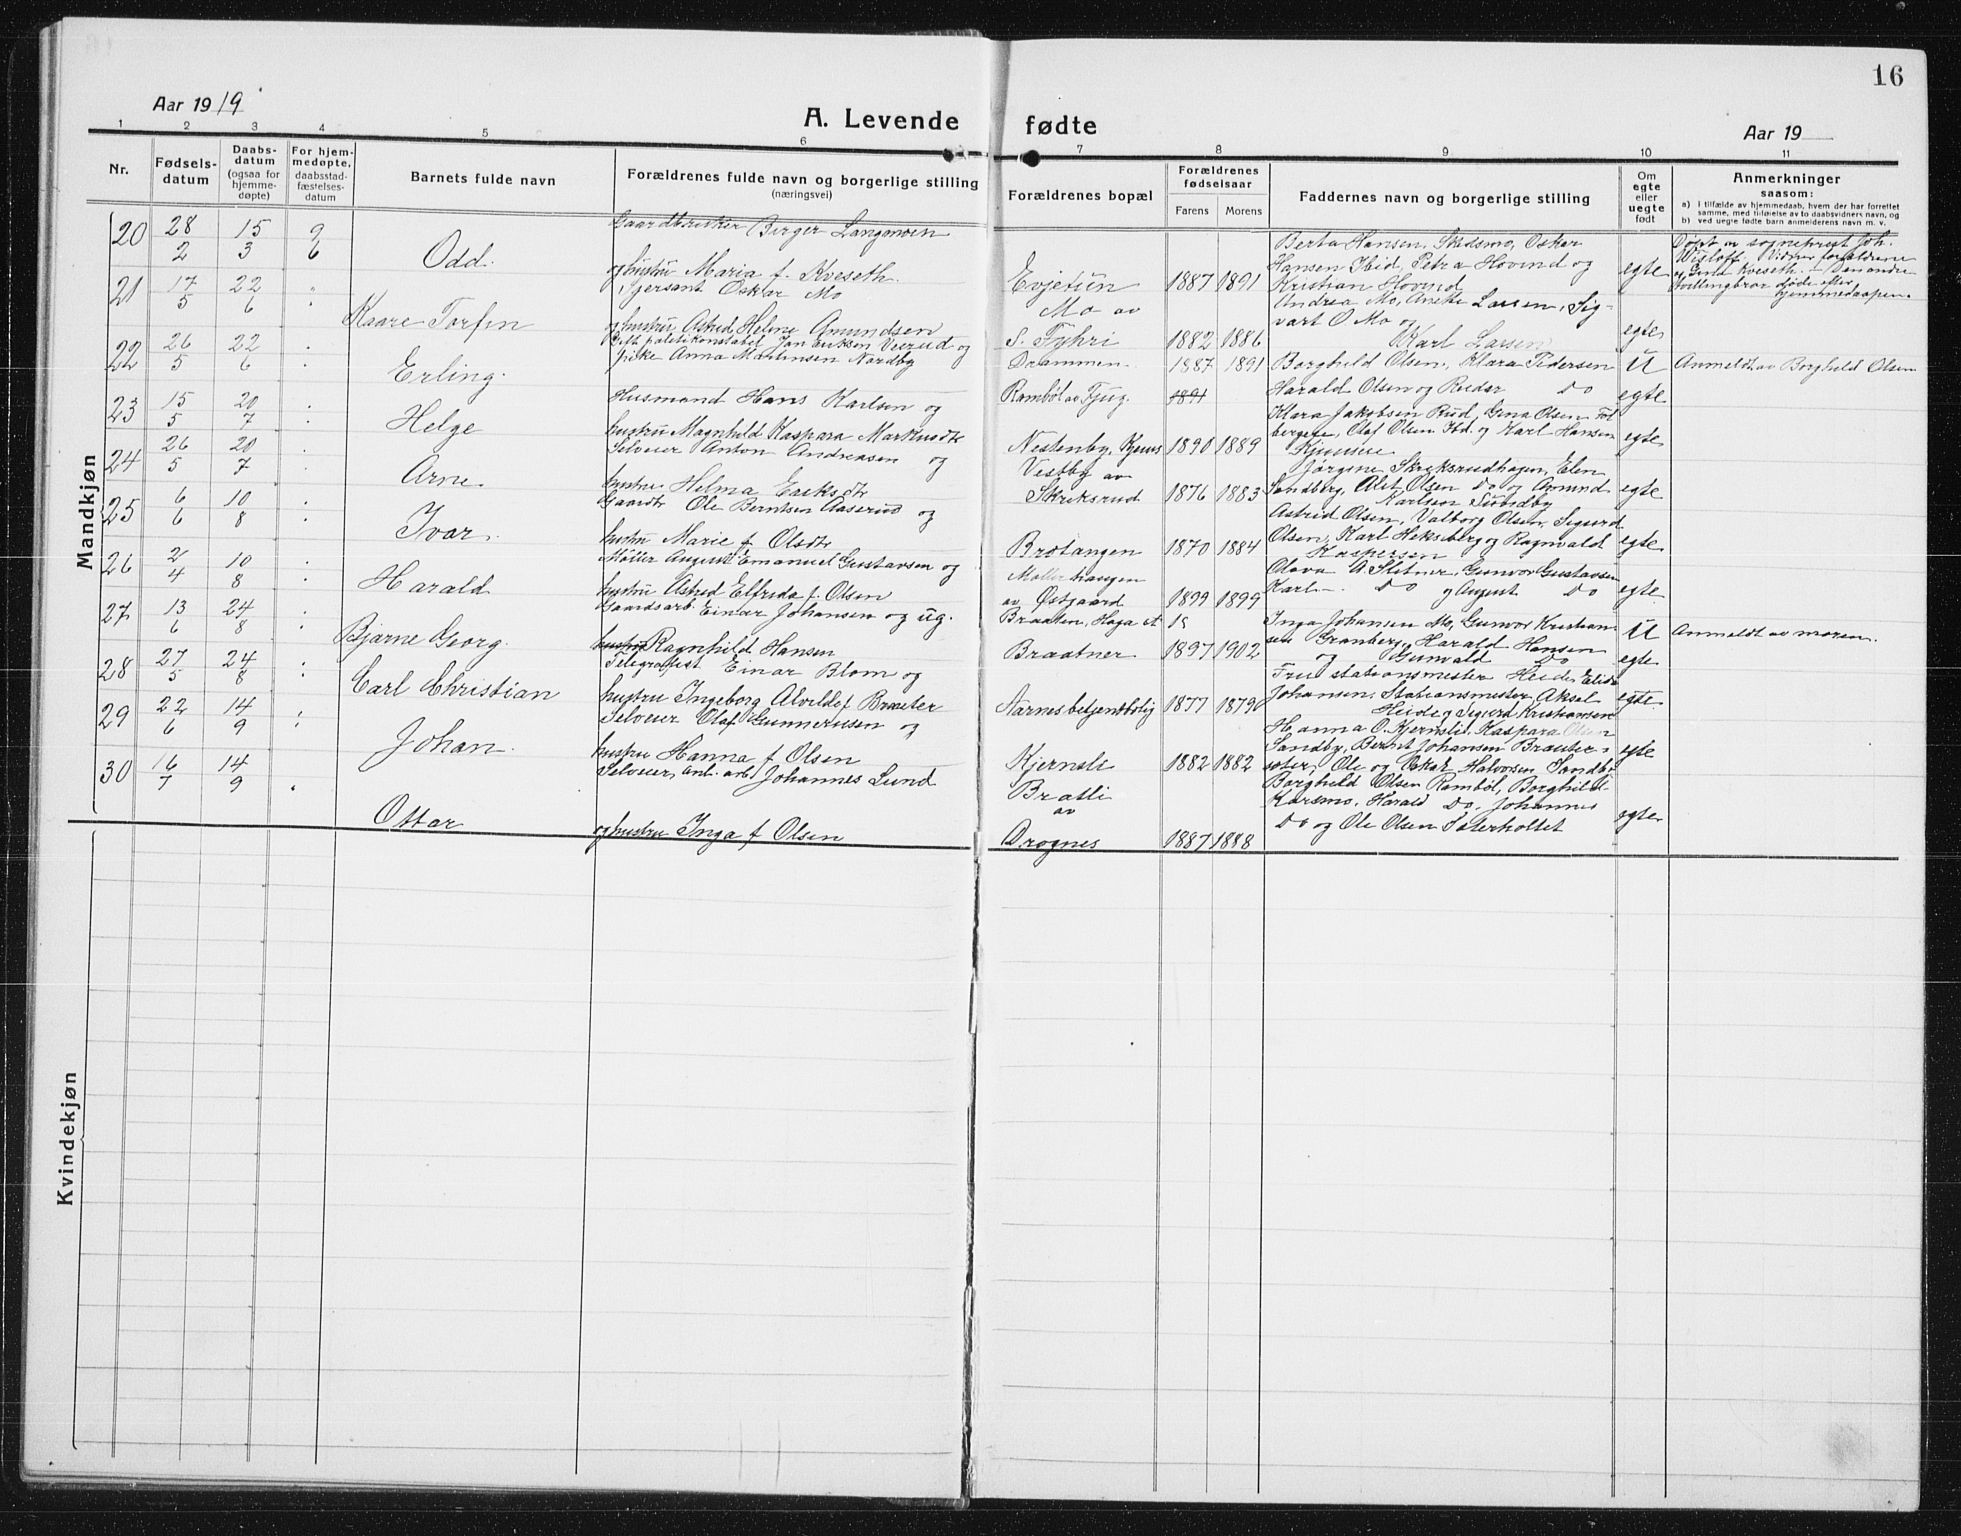 16
Aar 1919
A. Levende fødte
Aar 19
1 2 3 4 5 6 7 8 9 10 11
Nr.
Fødsels-
datum
Daabs-
datum
(ogsaa for
hjemme-
døpte)
For hjem-
medøpte,
daabsstad-
fæstelses-
datum
Barnets fulde navn
Forældrenes fulde navn og borgerlige stilling
(næringsvei)
Forældrenes bopæl
Forældrenes
fødselsaar
Farens Morens
Faddernes navn og borgerlige stilling
Om
egte
eller
uegte
født
Anmerkninger
saasom:
a) i tilfælde av hjemmedaab, hvem der har forrettet
samme, med tilføielse av to daabsvidners navn, og
b) ved uegte fødte barn anmelderens navn m. v.
Mandkjøn
20 28/2 15/3 9/6 Odd.
Gaardbruker Birger Langmoen
og hustru Maria f. Kveseth.
Evjetun 1887 1891
Berta Hansen, Skedsmo, Oskar
Hansen Ibid, Petra Hovind og
Kristian Hovind
egte
Døpt av sogneprest Joh.
Wisløff. Vidner forældrene
og Gina Kveseth. - Den andre
tvillingbror døde efter
hjemmedaapen.
21 17/5 22/6 " Kaare Torfin
Sjersant Oskar Mo
og hustru Astrid Helme Amundsen
Mo av
S. Fyhri 1882 1886
Andrea Mo, Anette Larsen, Sig-
vart O Mo og
Karl Larsen
egte
22 26/5 22/6 " Erling.
politikonstabel Jan Eriksen Veerud og
pike Anna Martinsen Nordby
Drammen 1887 1891
Borghild Olsen, Klara Pedersen
Harald Olsen og Reidar Do
U
Anmeldt av Borghild Olsen
Rambøl av Fjug. 1891
egte
23 15/5 20/7 " Helge
Husmand Hans Karlsen og
hustru Magnhild Kaspara Markusdtr
Nestenby, Kjuus 1890 1889
Klara Jakobsen Rud, Gina Olsen
bergene, Olaf Olsen Ibd. og Karl Hansen
egte
24 26/5 20/7 " Arne
Selveier Anton Andreasen og
hustru Helma Eriksdtr
Vestby av
Skriksrud 1876 1883
Jørgine Skriksrudhagen, Elen
Sandberg, Alet Olsen Do og Amund
Karlsen Sundby
egte
25 6/6 10/8 " Ivar.
Gaardbr Ole Berntsen Aaserud og
hustru Marie f Olsdtr
Brotangen 1870 1884
Astrid Olsen, Valborg Olsen, Sigurd
Olsen, Karl Hekseberg og Ragnvald
Kaspersen
egte
26 2/4 10/8 " Harald
Møller August Emanuel Gustavsen og
hustru Astrid Elfrida f. Olsen
Møllerhaugen
av Østgaard 1899 1899
Olava A Slitner, Gunvor Gustavsen
Karl Do og August Do
egte
27 13/6 24/8 " Bjarne Georg.
Gaardsarb. Einar Johansen og ug.
hustru Ragnhild Hansen
Braaten, Haga A 18
Braatner 1897 1902
Inga Johansen Mo, Gunvor Kristian-
sen Granberg, Harald Hansen
og Gunvald Do
U
egte
Anmeldt av moren.
28 27/5 24/8 " Carl Christian
Telegrafist Einar Blom og
hustru Ingeborg Alvilde f Braater
Aarnes betjentbolig 1877 1879
Fru stationsmester Heide, Elida
Johansen, Stationsmester Aksel
Heide og Sigurd Kristiansen
egte
29 22/6 14/9 " Johan.
Selveier Olaf Gunnerusen og
hustru Hanna f Olsen
Kjernsli 1882 1882
Hanna O. Kjernsli, Kaspara Olsen
Sandby, Bernt Johansen Brauter-
sæter, Ole og Oskar Halvorsen Sandby
egte
30 16/7 14/9 " Ottar
Selveier, anl. arb. Johannes Lund
og hustru Inga f Olsen
Bratli
av
Drognes 1887 1888
Borghild Olsen Rambøl, Borghild
Karsmo, Harald Do, Johannes
Do og Ole Olsen Sæterholtet
egte
Kvindekjøn